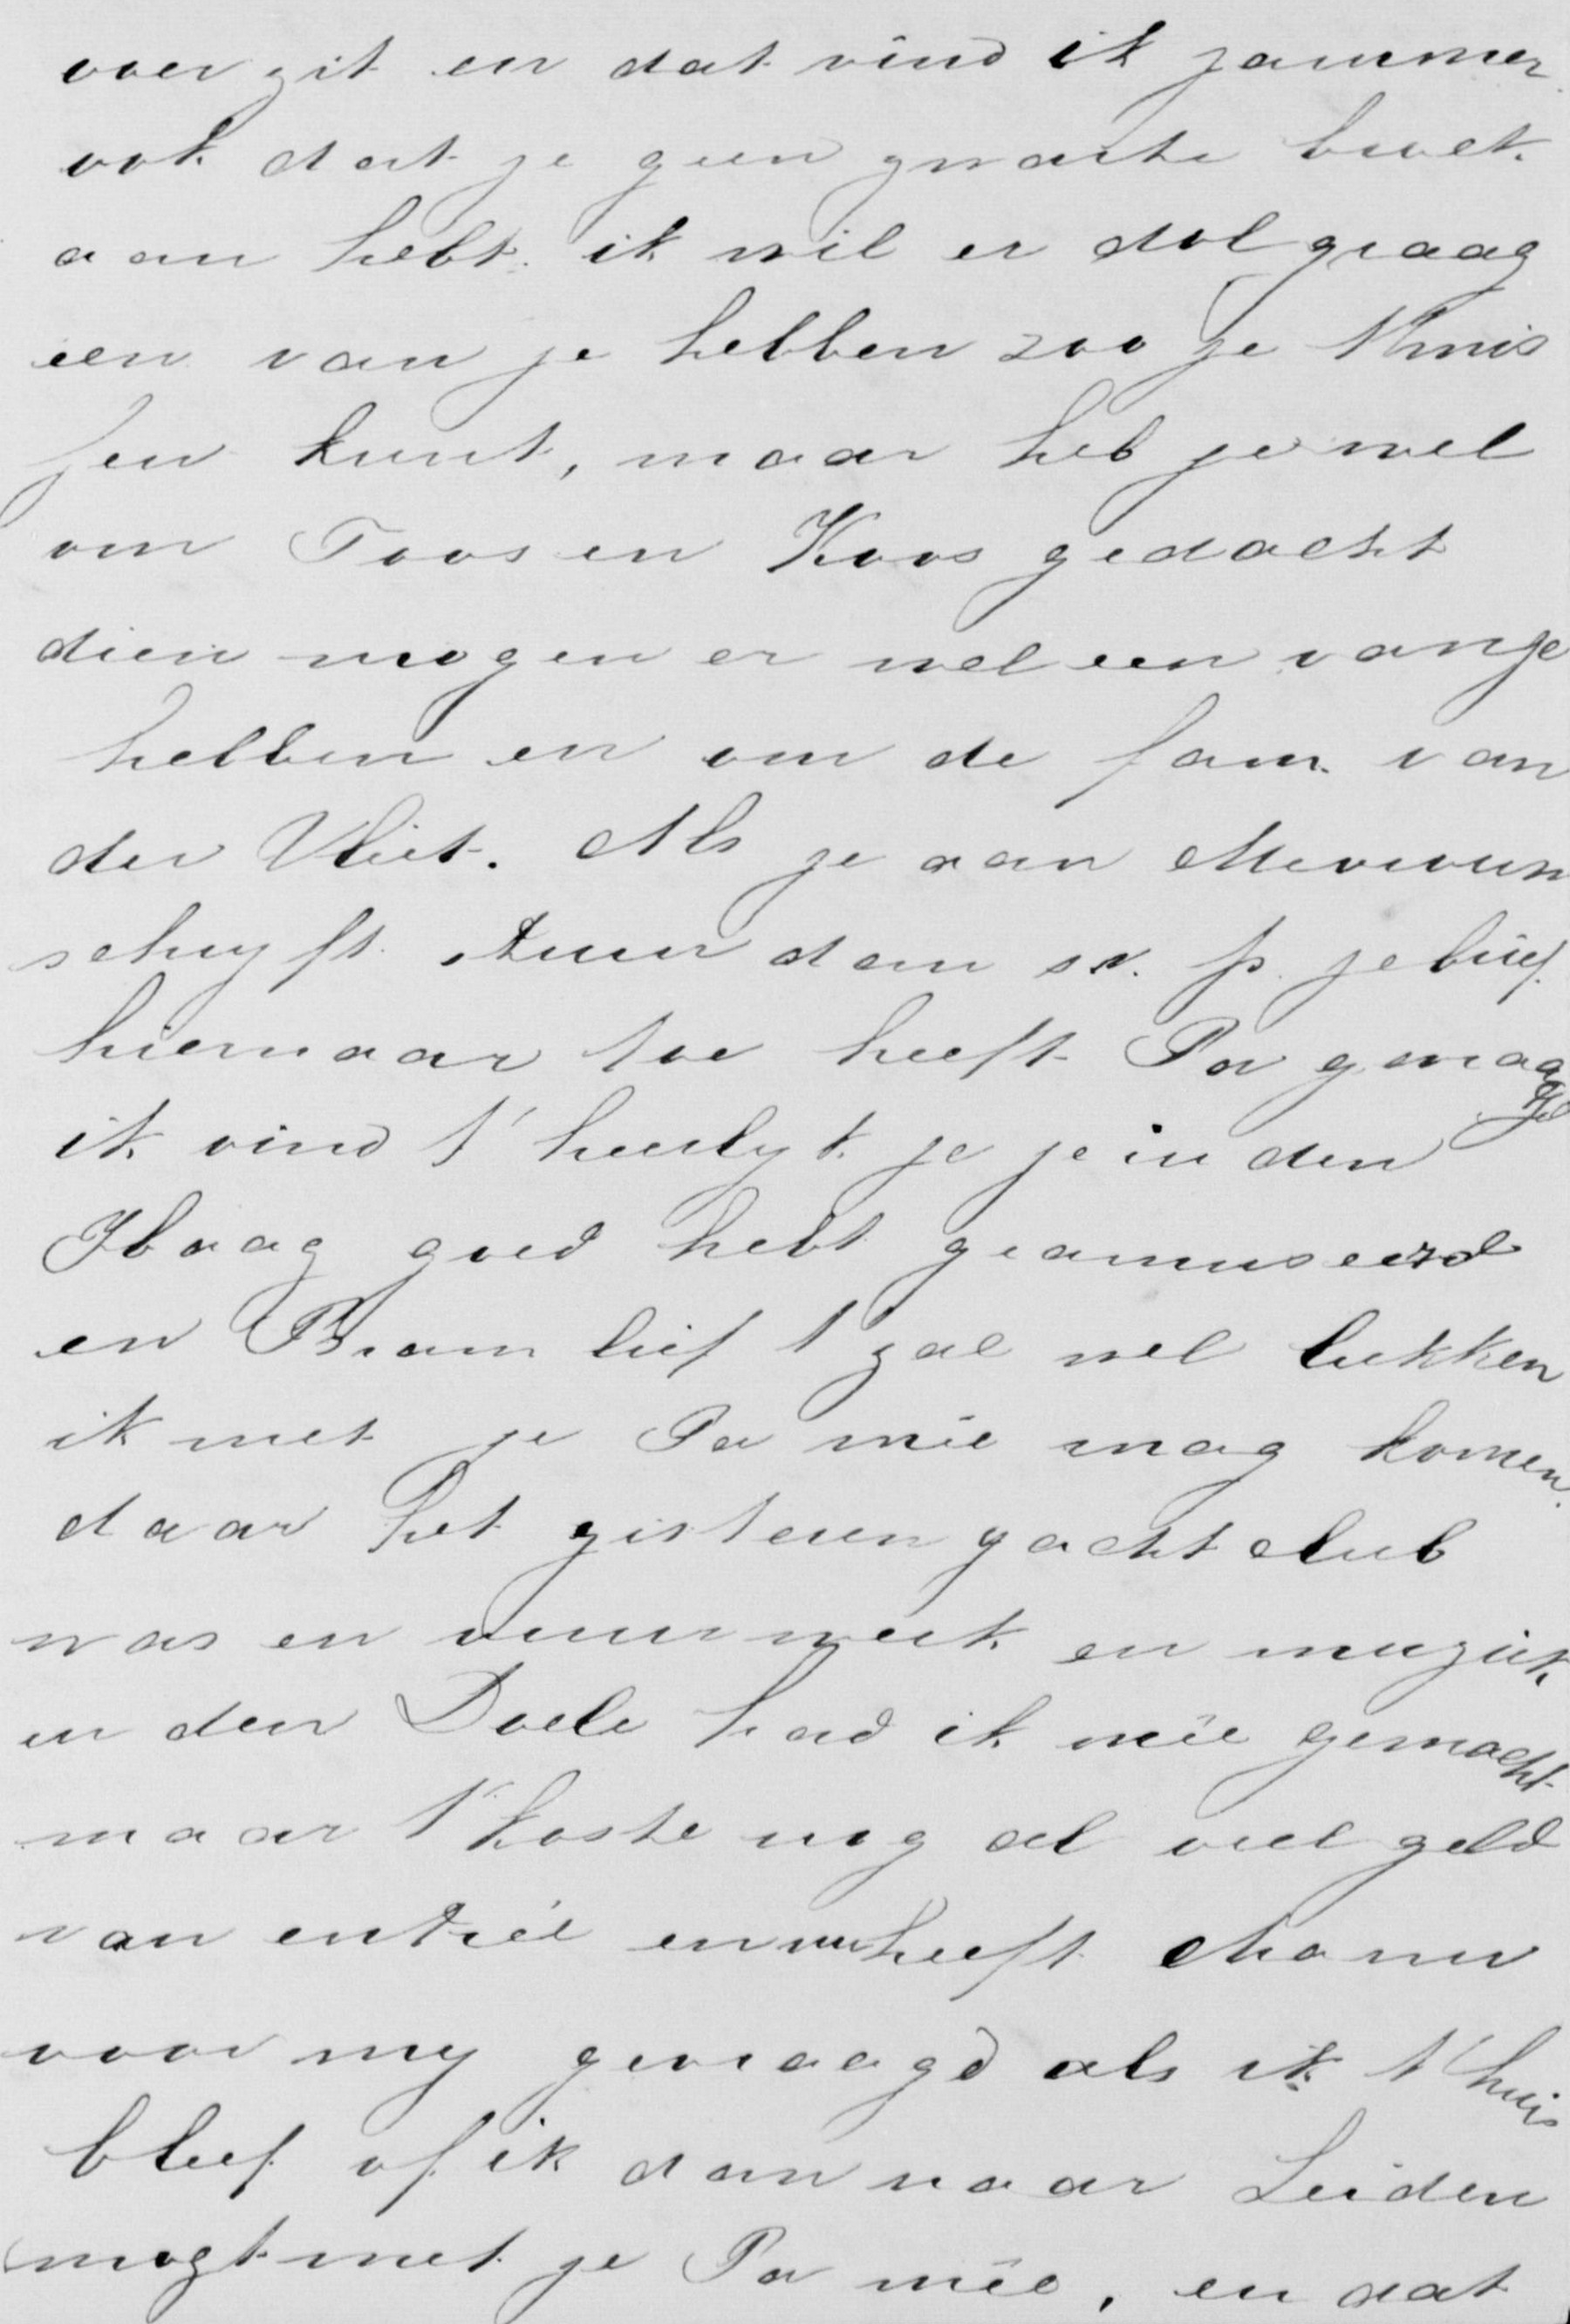 voer zit en dat vind ik jammer
ook dat je geen zwarte broek
aan hebt. ik wil er dolgraag
een van je hebben zoo je t'mis
sen kunt, maar heb je wel
om Toos en Koos gedacht
dien mogen er wel een van je
hebben en om de fam. van
der Vliet. Als je aan Mevrouw
schryft stuur dan s.v.p. je brief
hiernaar toe heeft Pa gevraagd
ik vind t' heerlyk je je in den
Haag goed hebt geamuseerd
en Bram lief t zal wel lukken
ik met je Pa mêe mag komen.
daar het gisteren yachtclub
was en vuurwerk en muziek
in den Doele had ik mêe gemacht
maar t' koste nog al veel geld
van entrée en nu heeft Mama
voor my gevraagd als ik t'huis
bleef of ik dan naar Leiden
mogt met je Pa mêe, en dat